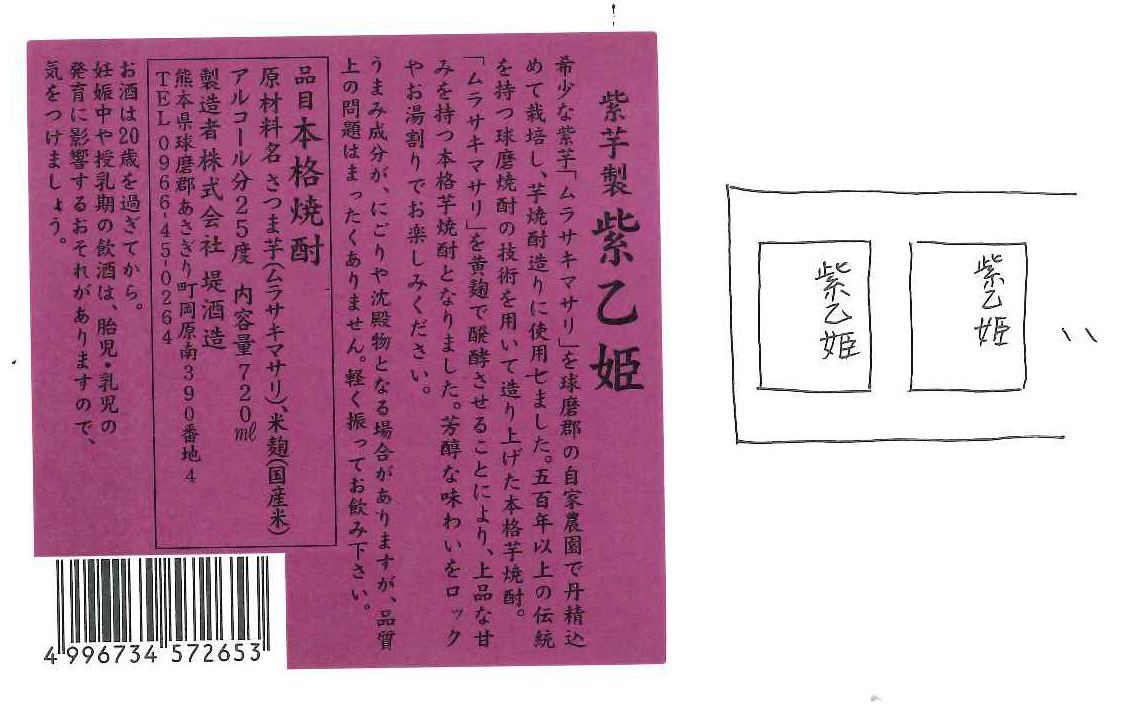 紫芋製 紫乙姫
希少な紫芋「ムラサキマサリ」を球磨郡の自家農園で丹精込
めて栽培し、芋焼酎造りに使用しました。五百年以上の伝統
を持つ球磨焼酎の技術を用いて造り上げた本格芋焼酎。
「ムラサキマサリ」を黄麹で醗酵させることにより、上品な甘
みを持つ本格芋焼酎となりました。芳醇な味わいをロック
やお湯割りでお楽しみください。
うまみ成分が、にごりや沈殿物となる場合がありますが、品質
上の問題はまったくありません。軽く振ってお飲み下さい。
品目 本格焼酎
原材料名 さつま芋(ムラサキマサリ)、米麹(国産米)
アルコール分25度 内容量720㎖
製造者 株式会社 堤酒造
熊本県球磨郡あさぎり町岡原南390番地4
TEL 0966-45-0264
お酒は20歳を過ぎてから。
妊娠中や授乳期の飲酒は、胎児・乳児の
発育に影響するおそれがありますので、
気をつけましょう。
4 996734 572653
紫乙姫
紫乙姫